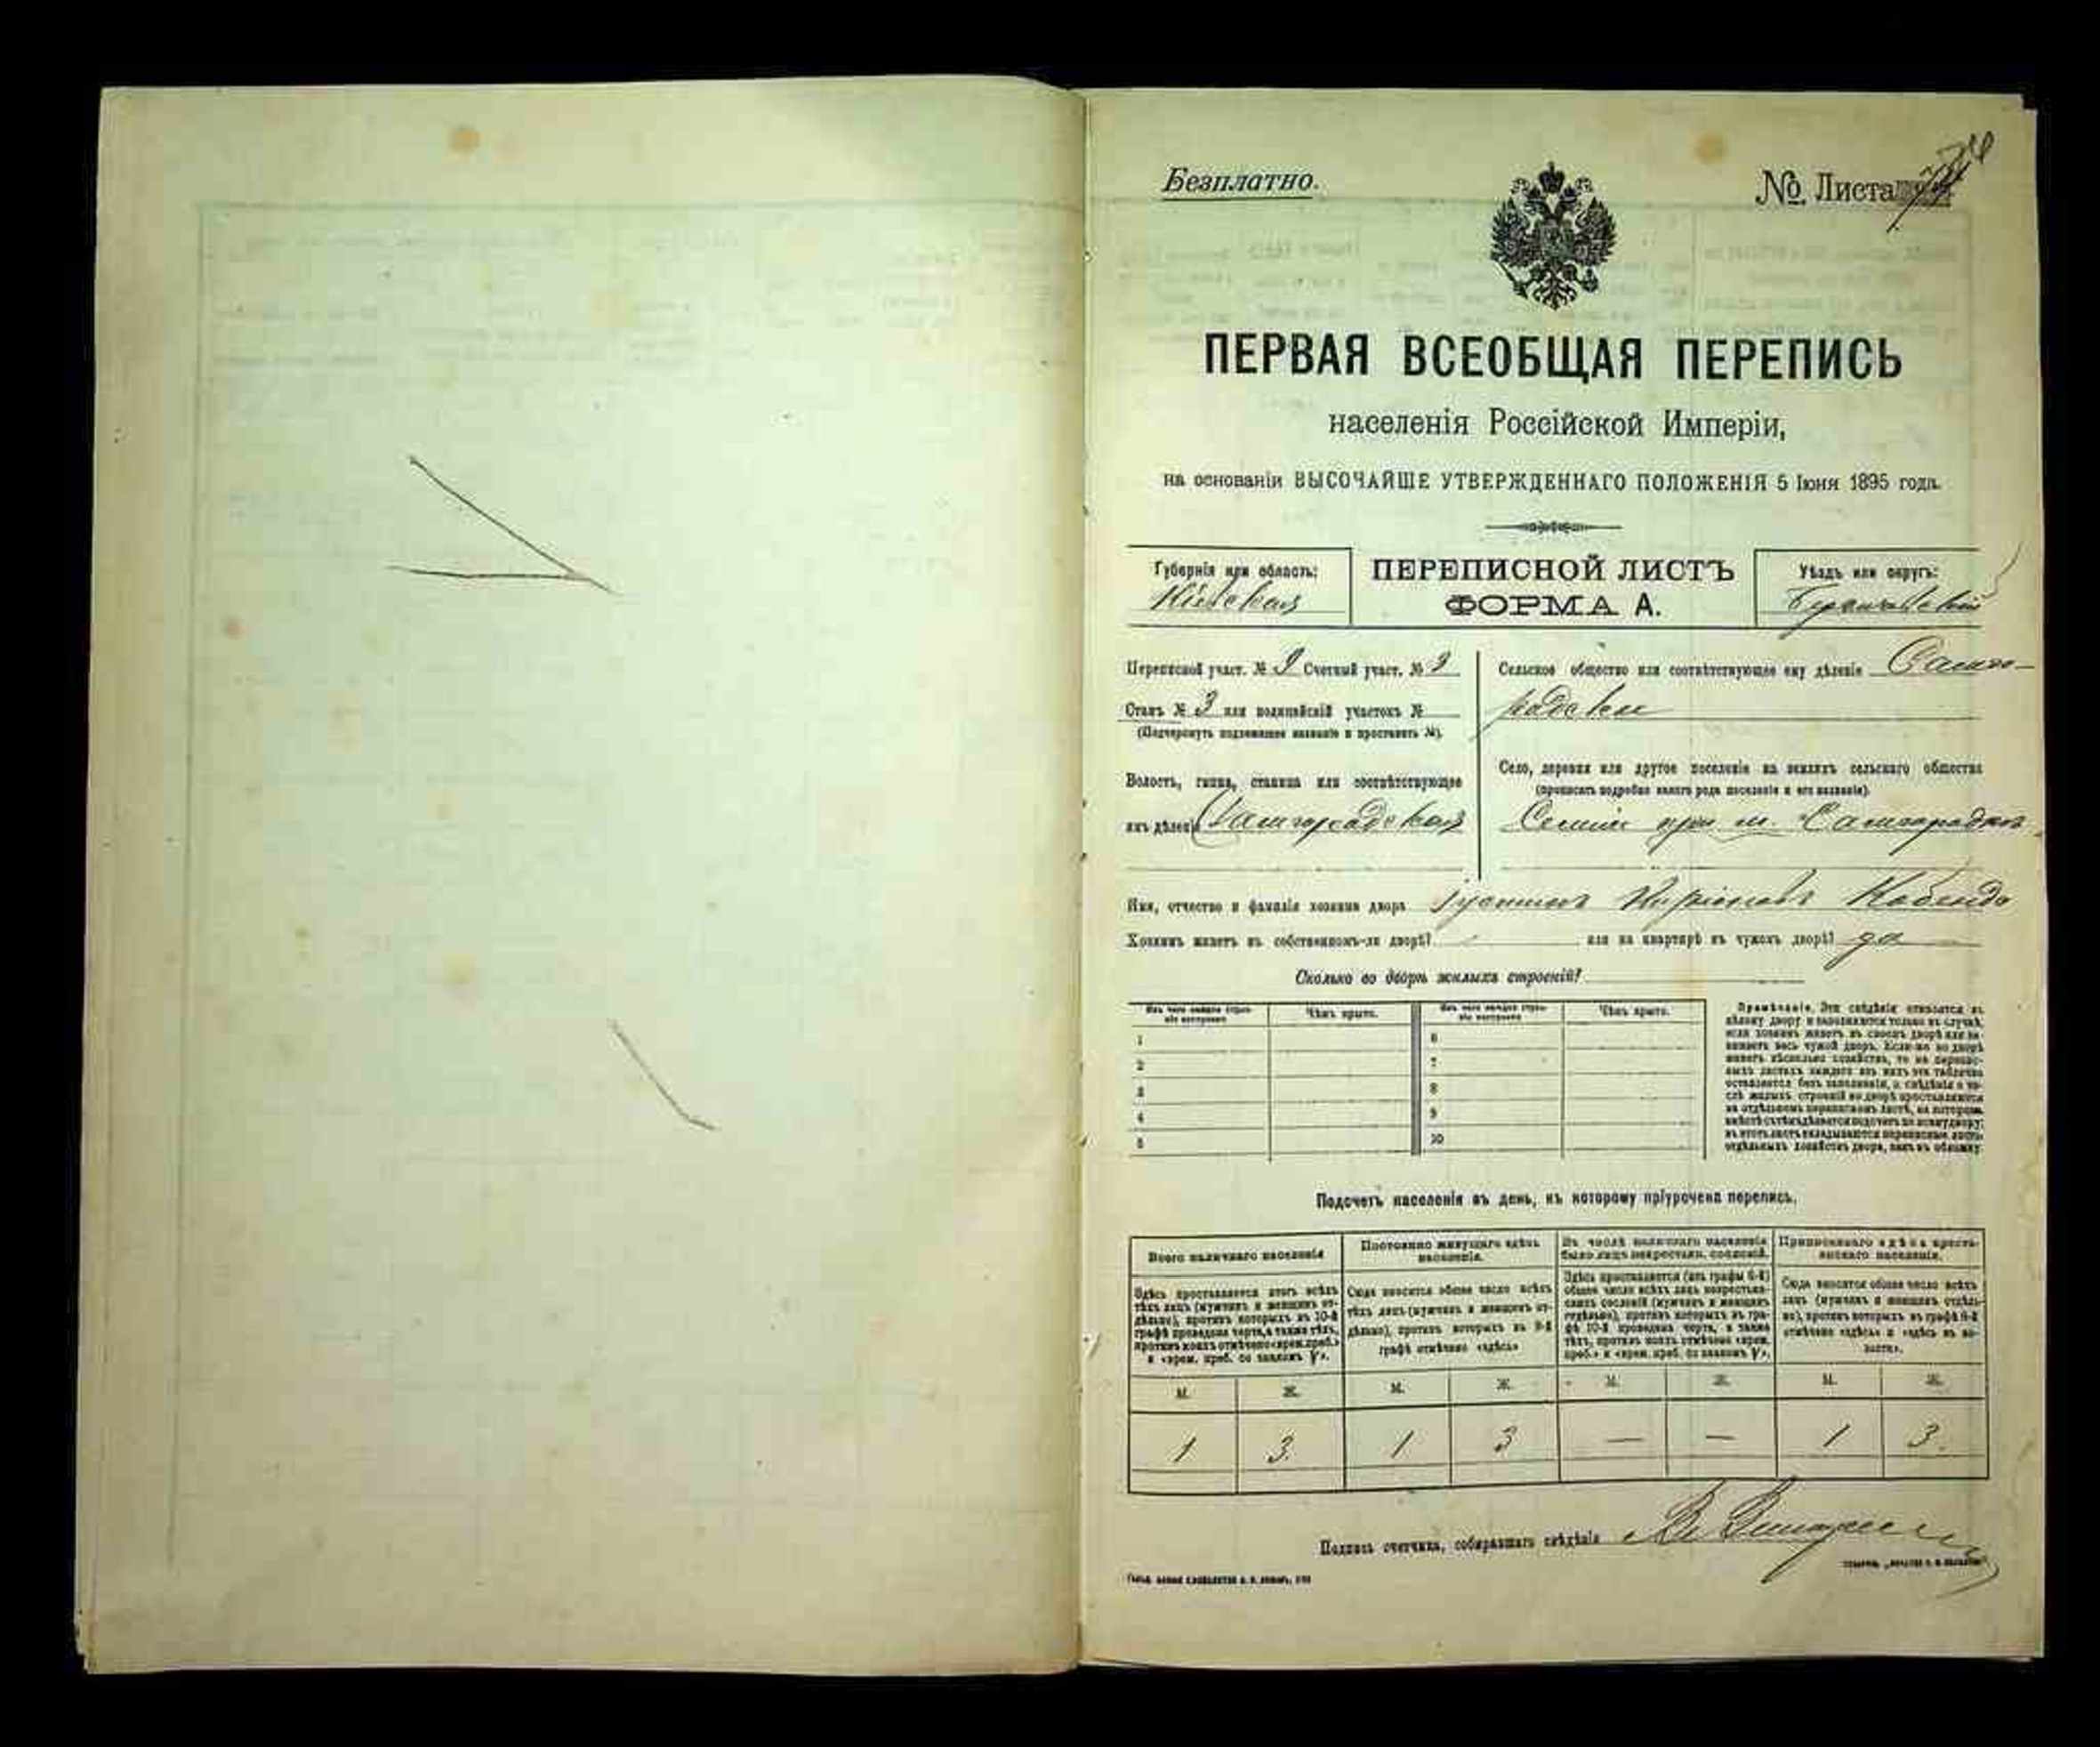 Безплатно.
№ Листа
ПЕРВАЯ ВСЕОБЩАЯ ПЕРЕПИСЬ
населенія Россійской Имперіи,
на основаніи ВЫСОЧАЙШЕ УТВЕРЖДЕННАГО ПОЛОЖЕНІЯ 5 Іюня 1895 года.
Губернія или область:
Кіевская
ПЕРЕПИСНОЙ ЛИСТЪ
ФОРМА А.
Уѣздъ или округъ:
Бердичевскій
Переписной участ. № 9 Счетный участ. № 3
Станъ № 3 или полицейскій участокъ №
(Подчеркнуть подлежащее названіе и проставить №).
Волость, гмина, станица или соотвѣтствующее
имъ дѣленіе Самгородская
Сельское общество или соотвѣтствующее ему дѣленіе Самго-
родское
Село, деревня или другое поселеніе на земляхъ сельскаго общества
(прописать подробно какого рода поселеніе и его названіе).
при м. Самгородкѣ
Имя, отчество и фамилія хозяина двора Іустинъ
Хозяинъ живетъ въ собственномъ-ли дворѣ? или на квартирѣ въ чужомъ дворѣ? да
Сколько во дворѣ жилыхъ строеній?
Изъ чего каждое строе-
ніе построено
Чѣмъ крыто.
Изъ чего каждое строе-
ніе построено
Чѣмъ крыто.
1 6
2 7
3 8
4 9
5 10
Примѣчаніе. Эти свѣдѣнія относятся къ
цѣлому двору и заполняются только въ случаѣ,
если хозяинъ живетъ въ своемъ дворѣ или за-
нимаетъ весь чужой дворъ. Если-же во дворѣ
живетъ нѣсколько хозяйствъ, то на перепис-
ныхъ листахъ каждаго изъ нихъ эта табличка
оставляется безъ заполненія, а свѣдѣнія о чи-
слѣ жилыхъ строеній во дворѣ проставляются
на отдѣльномъ переписномъ листѣ, на которомъ
отдѣльныхъ хозяйствъ двора, какъ въ обложку.
Подсчетъ населенія въ день, къ которому пріурочена перепись.
Всего наличнаго населенія
Здѣсь проставляется итогъ всѣхъ
тѣхъ лицъ (мужчинъ и женщинъ от-
дѣльно), противъ которыхъ въ 10-й
графѣ проведена черта, а также тѣхъ,
противъ коихъ отмѣчено «врем. преб.»
и «врем. преб. со знакомъ V».
Постоянно живущаго здѣсь
населенія.
Сюда вносится общее число всѣхъ
тѣхъ лицъ (мужчинъ и женщинъ от-
дѣльно), противъ которыхъ въ 9-й
графѣ отмѣчено «здѣсь»
Въ числѣ наличнаго населенія
было лицъ некрестьян. сословій.
Здѣсь проставляется (изъ графы 6-й)
общее число всѣхъ лицъ некрестьян-
скихъ сословій (мужчинъ и женщинъ
отдѣльно), противъ которыхъ въ гра-
фѣ 10-й проведена черта, а также
тѣхъ, противъ коихъ отмѣчено «врем.
преб.» и «врем. преб. со знакомъ V».
Приписаннаго здѣсь кресть-
янскаго населенія.
Сюда вносится общее число всѣхъ
лицъ (мужчинъ и женщинъ отдѣль-
но), противъ которыхъ въ графѣ 8-й
отмѣчено «здѣсь» и «здѣсь въ во-
лости».
М. Ж. М. Ж. М. Ж. М. Ж.
1 3. 1 3 — — 1 3.
Подпись счетчика, собиравшаго свѣдѣнія